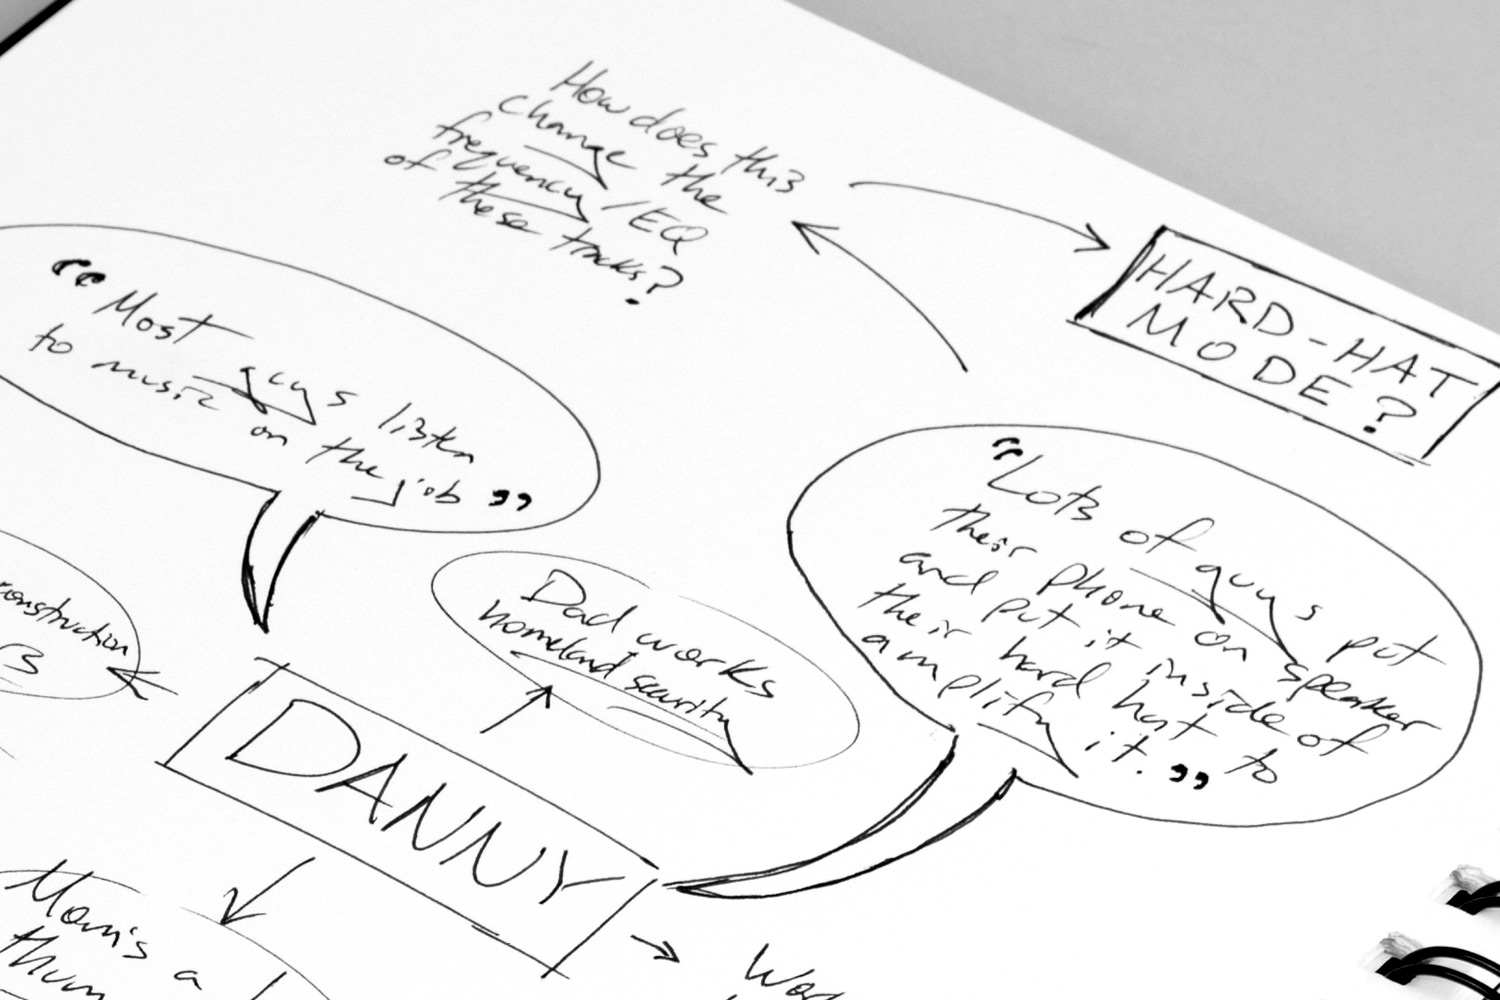 How does this
change the
frequency/EQ
of these tracks?
HARD-HAT
MODE?
"Most guys listen
to music on the job"
"Lots of guys put
their phone on speaker
and put it inside of
their hard hat to
amplify it."
construction
Dad works
homeland security
DANNY
Mom's a